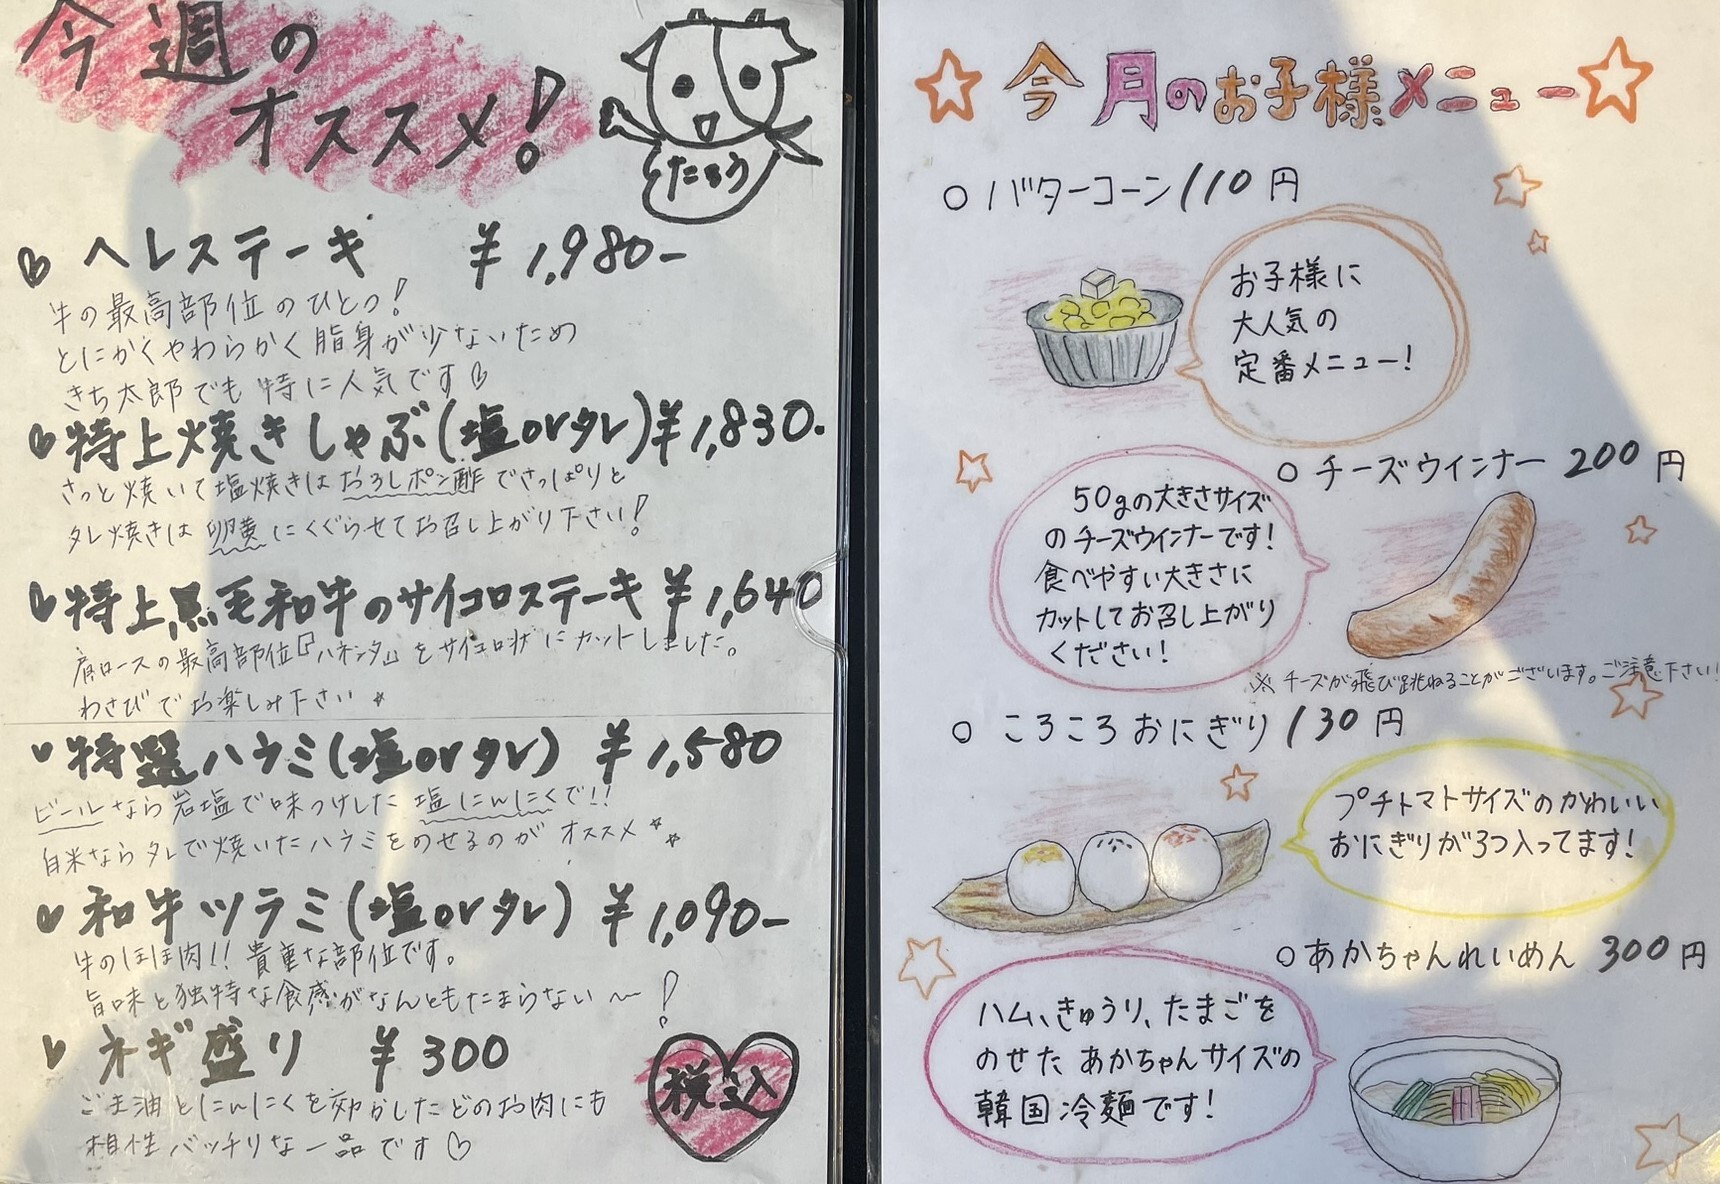 今週の
オススメ!
たろう
ヘレステーキ ¥1,980-
牛の最高部位のひとつ!
とにかくやわらかく脂身が少ないため
きち太郎でも特に人気です
特上焼きしゃぶ(塩orタレ)¥1,830-
さっと焼いて塩焼きはおろしポン酢でさっぱりと
タレ焼きは卵黄にくぐらせてお召し上がり下さい!
特上黒毛和牛のサイコロステーキ ¥1,640
肩ロースの最高部位『ハネシタ』をサイコロ状にカットしました。
わさびでお楽しみ下さい
特選ハラミ(塩orタレ) ¥1,580
ビールなら岩塩で味つけした塩にんにくで!!
白米ならタレで焼いたハラミをのせるのがオススメ
和牛ツラミ(塩orタレ) ¥1,090-
牛のほほ肉!! 貴重な部位です。
旨味と独特な食感がなんともたまらない〜!
ネギ盛り ¥300
ごま油とにんにくを効かしたどのお肉にも
相性バッチリな一品です♡
税込
☆今月のお子様メニュー☆
○バターコーン 110円
お子様に
大人気の
定番メニュー!
○チーズウインナー 200円
50gの大きさサイズ
のチーズウインナーです!
食べやすい大きさに
カットしてお召し上がり
ください!
※チーズが飛び跳ねることがございます。ご注意下さい!
○ころころおにぎり 130円
プチトマトサイズのかわいい
おにぎりが3つ入ってます!
○あかちゃんれいめん 300円
ハム、きゅうり、たまごを
のせたあかちゃんサイズの
韓国冷麺です!